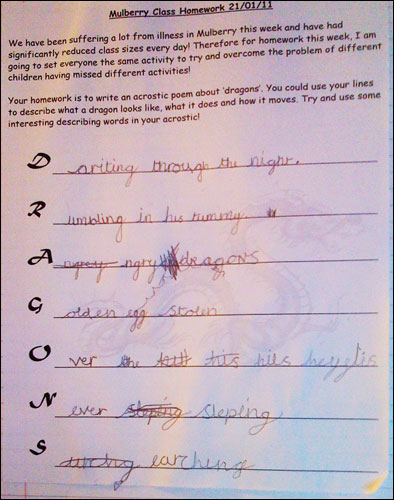 Mulberry Class Homework 21/01/11
We have been suffering a lot from illness in Mulberry this week and have had
significantly reduced class sizes every day! Therefore for homework this week, I am
going to set everyone the same activity to try and overcome the problem of different
children having missed different activities!
Your homework is to write an acrostic poem about 'dragons'. You could use your lines
to describe what a dragon looks like, what it does and how it moves. Try and use some
interesting describing words in your acrostic!
D arting through the night.
R umbling in his tummy.
A ngry dRagONS
G olden egg stolen
O ver the hils he
N ever sleping
S earching